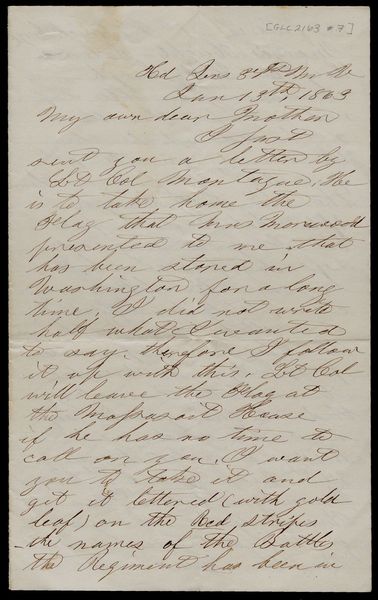 [GLC 2163 #7]
Hd Qrs
Jan 13th, 1863
My own dear Mother
I just
sent you a letter by
Lt Col Montague. He
is to take home the
Flag that Mrs
presented to me that
has been stored in
Washington for a long
time. I did not write
half what I wanted
to say. therefore I follow
it up with this. Lt Col
will leave the Flag at
the Massasoit House
if he has no time to
call on you. I want
you to take it and
get it lettered (with gold
leaf) on the Red stripes
the names of the Battles
the Regiment has been in